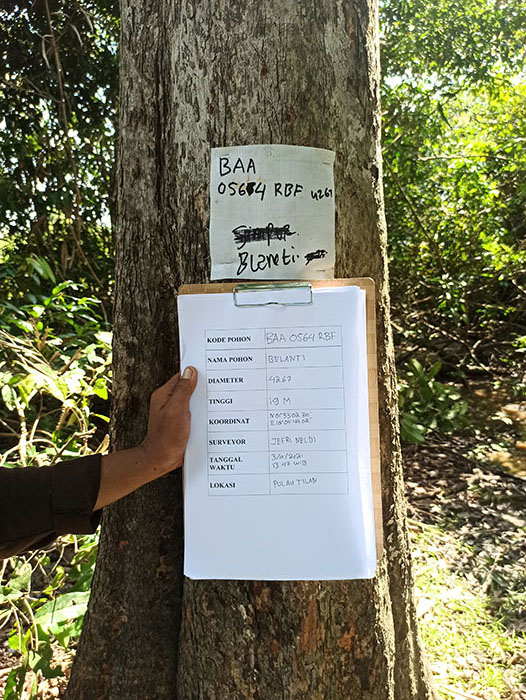 BAA
0564 RBF 4267
Blanti
KODE POHON BAA 0564 RBF
NAMA POHON BELANTI
DIAMETER 4267
TINGGI 19 M
KOORDINAT
SURVEYOR JEFRI NELDI
TANGGAL
WAKTU 13.47 WIB
LOKASI PULAU TILAN